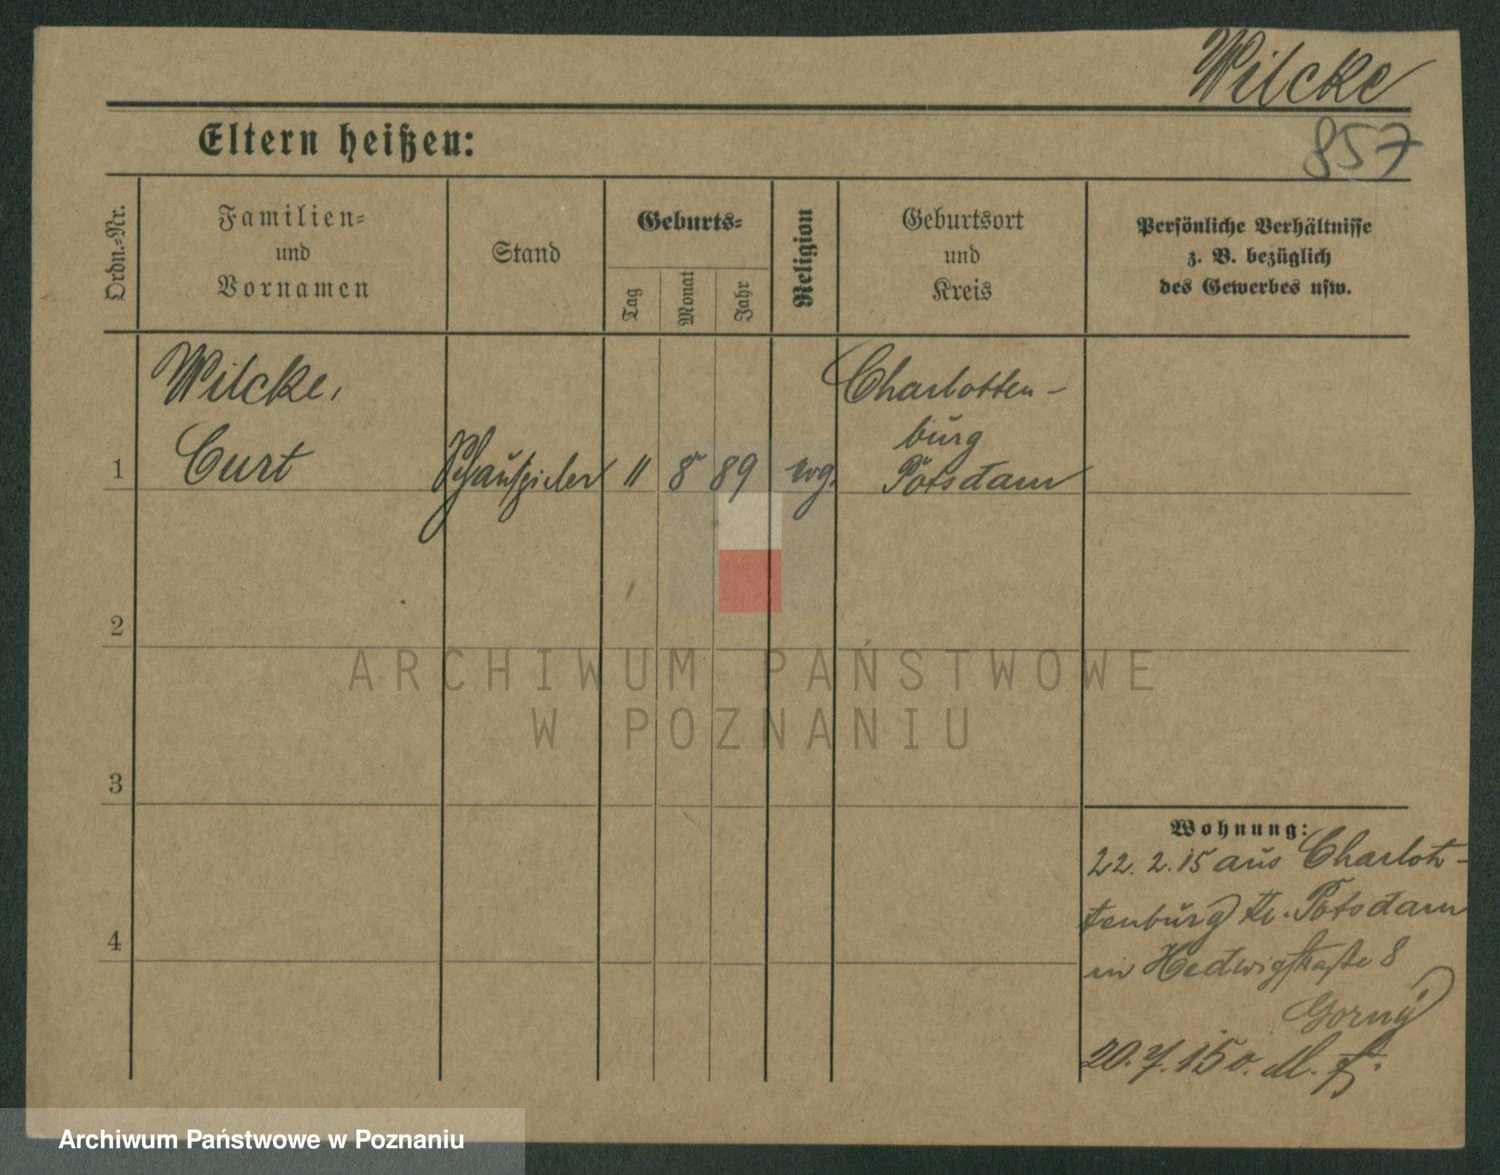 Wilcke
857
Eltern heißen:
Ordn.-Nr.
Familien-
und
Vornamen
Stand
Geburts-
Tag
Monat
Jahr
Religion
Geburtsort
und
Kreis
Persönliche Verhältnisse
z. B. bezüglich
des Gewerbes usw.
1
Wilcke,
Curt
Schauspieler
11
8
89
evg.
Charlotten-
burg
Potsdam
2
3
4
Wohnung:
22. 2. 15 aus Charlot-
tenburg Kr. Potsdam
in Hedwigstraße 8
Gorny
20. 7. 15 o.
ARCHIWUM PAŃSTWOWE
W POZNANIU
Archiwum Państwowe w Poznaniu